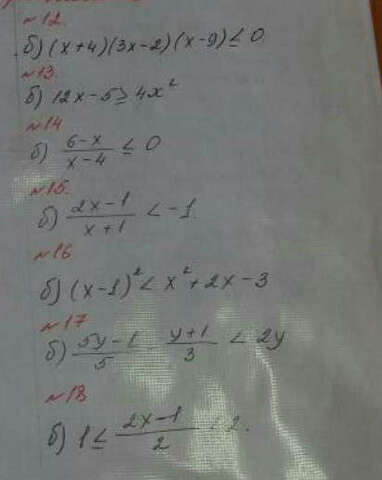 №12.
б) (x+4)(3x-2)(x-9) ≤ 0
№13.
б) 12x-5 ≥ 4x²
№14
б) (6-x)/(x-4) ≤ 0
№15.
б) (2x-1)/(x+1) < -1.
№16
б) (x-1)² < x²+2x-3
№17
б) (5y-1)/5 - (y+1)/3 < 2y
№18
б) 1 ≤ (2x-1)/2 < 2.